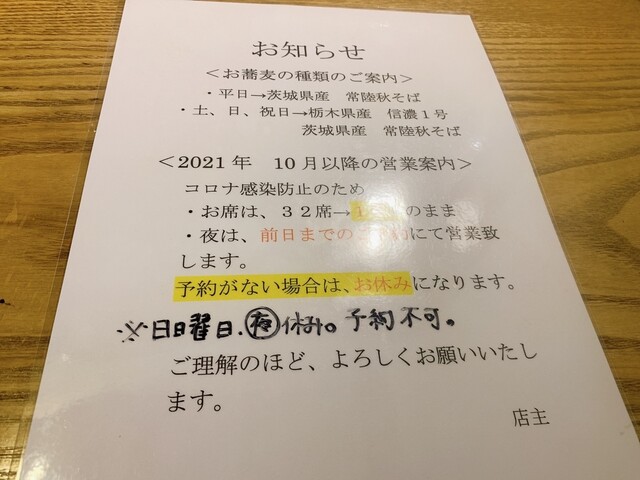 お知らせ
＜お蕎麦の種類のご案内＞
・平日→茨城県産　常陸秋そば
・土、日、祝日→栃木県産　信濃１号
茨城県産　常陸秋そば
＜2021年　10月以降の営業案内＞
コロナ感染防止のため
・お席は、３２席→のまま
・夜は、前日までのご予約にて営業致
します。
予約がない場合は、お休みになります。
※日曜日.夜休み。予約不可。
ご理解のほど、よろしくお願いいたし
ます。
店主